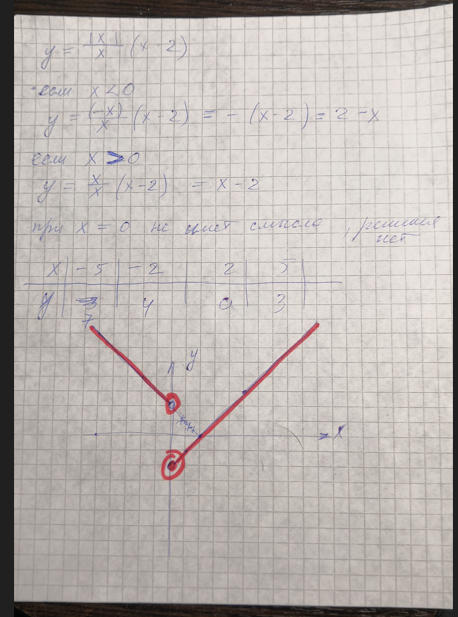 y = |x|/x (x-2)
если x<0
y = (-x)/x (x-2) = -(x-2) = 2-x
если x>0
y = x/x (x-2) = x-2
при x = 0 не имеет смысла, решения
нет
x -5 -2 2 5
y 7 4 0 3
y
x